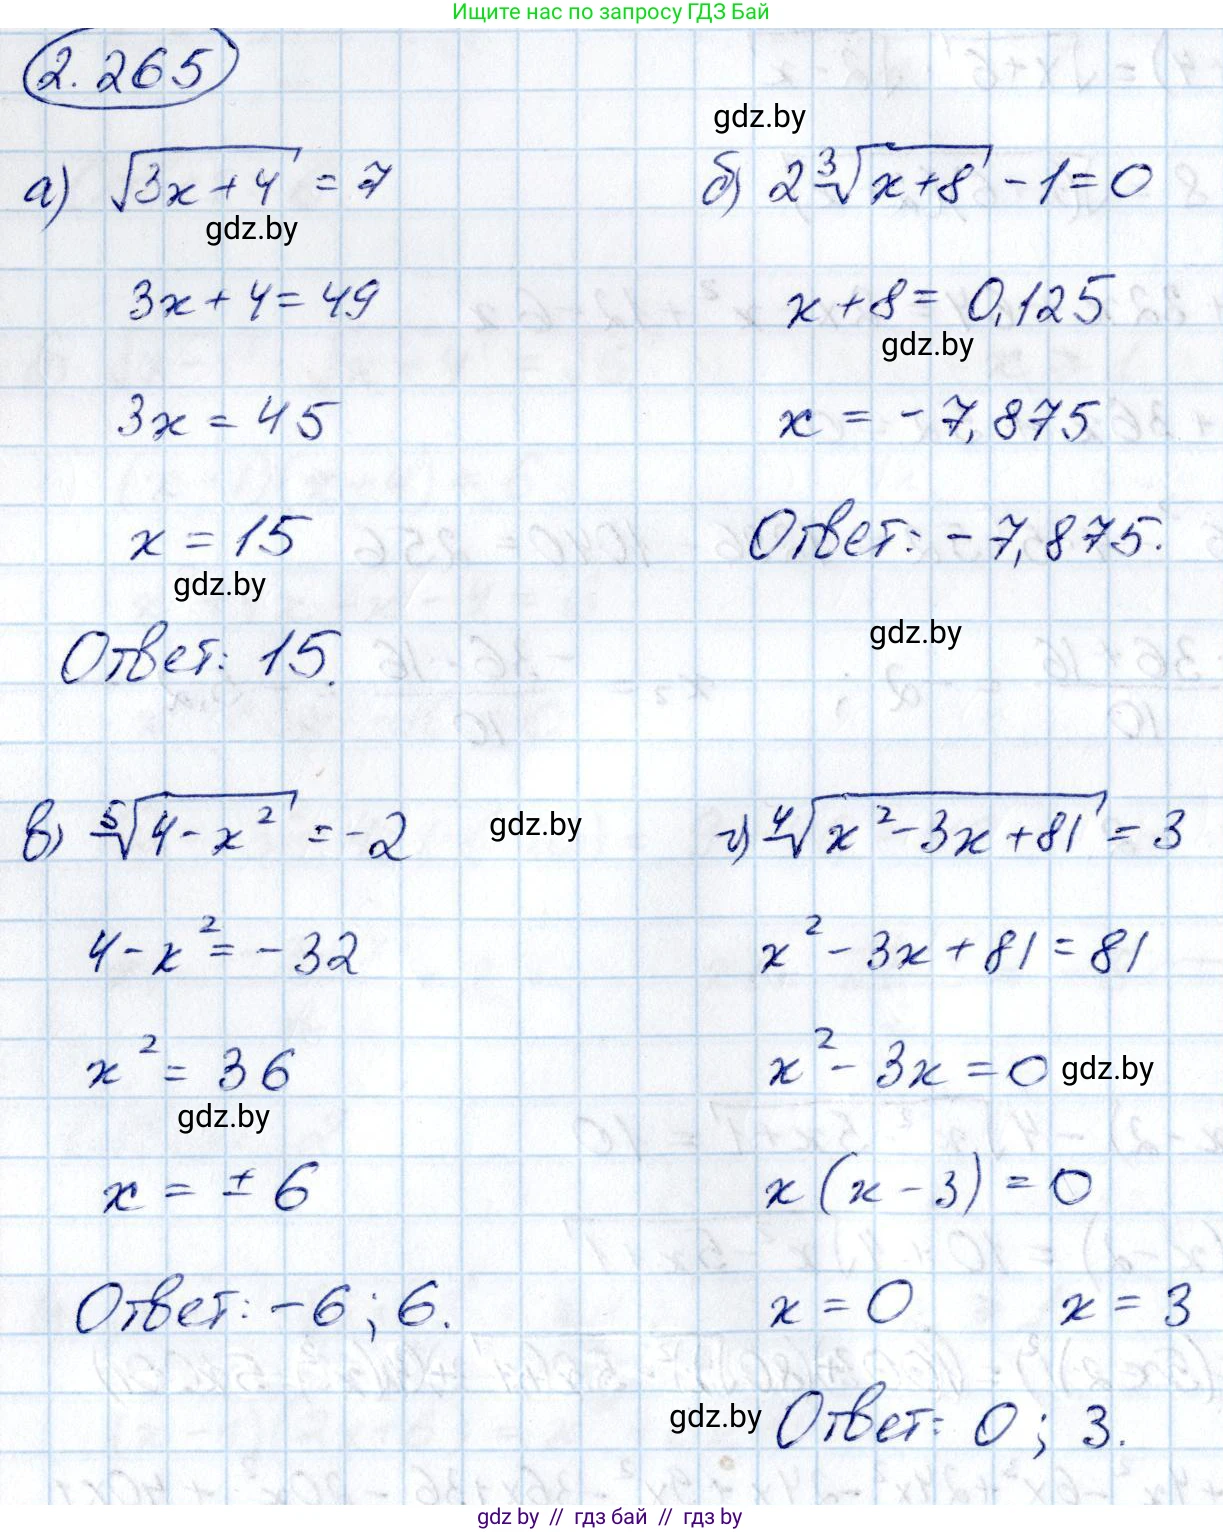 Ищите нас по запросу ГДЗ Бай
2.265
а) √(3x+4) = 7
gdz.by
3x+4=49
3x = 45
x = 15
gdz.by
Ответ: 15.
gdz.by
б) 2∛(x+8) - 1=0
x+8= 0,125
gdz.by
x = -7,875
Ответ: -7,875.
gdz.by
в) ⁵√(4-x²) = -2
gdz.by
4-x²= -32
x² = 36
gdz.by
x = ±6
Ответ: -6; 6.
г) ⁴√(x²-3x+81) = 3
x²-3x+81=81
x²-3x=0
gdz.by
x(x-3)=0
x=0 x=3
gdz.by
Ответ: 0; 3.
gdz.by // гдз бай // гдз by